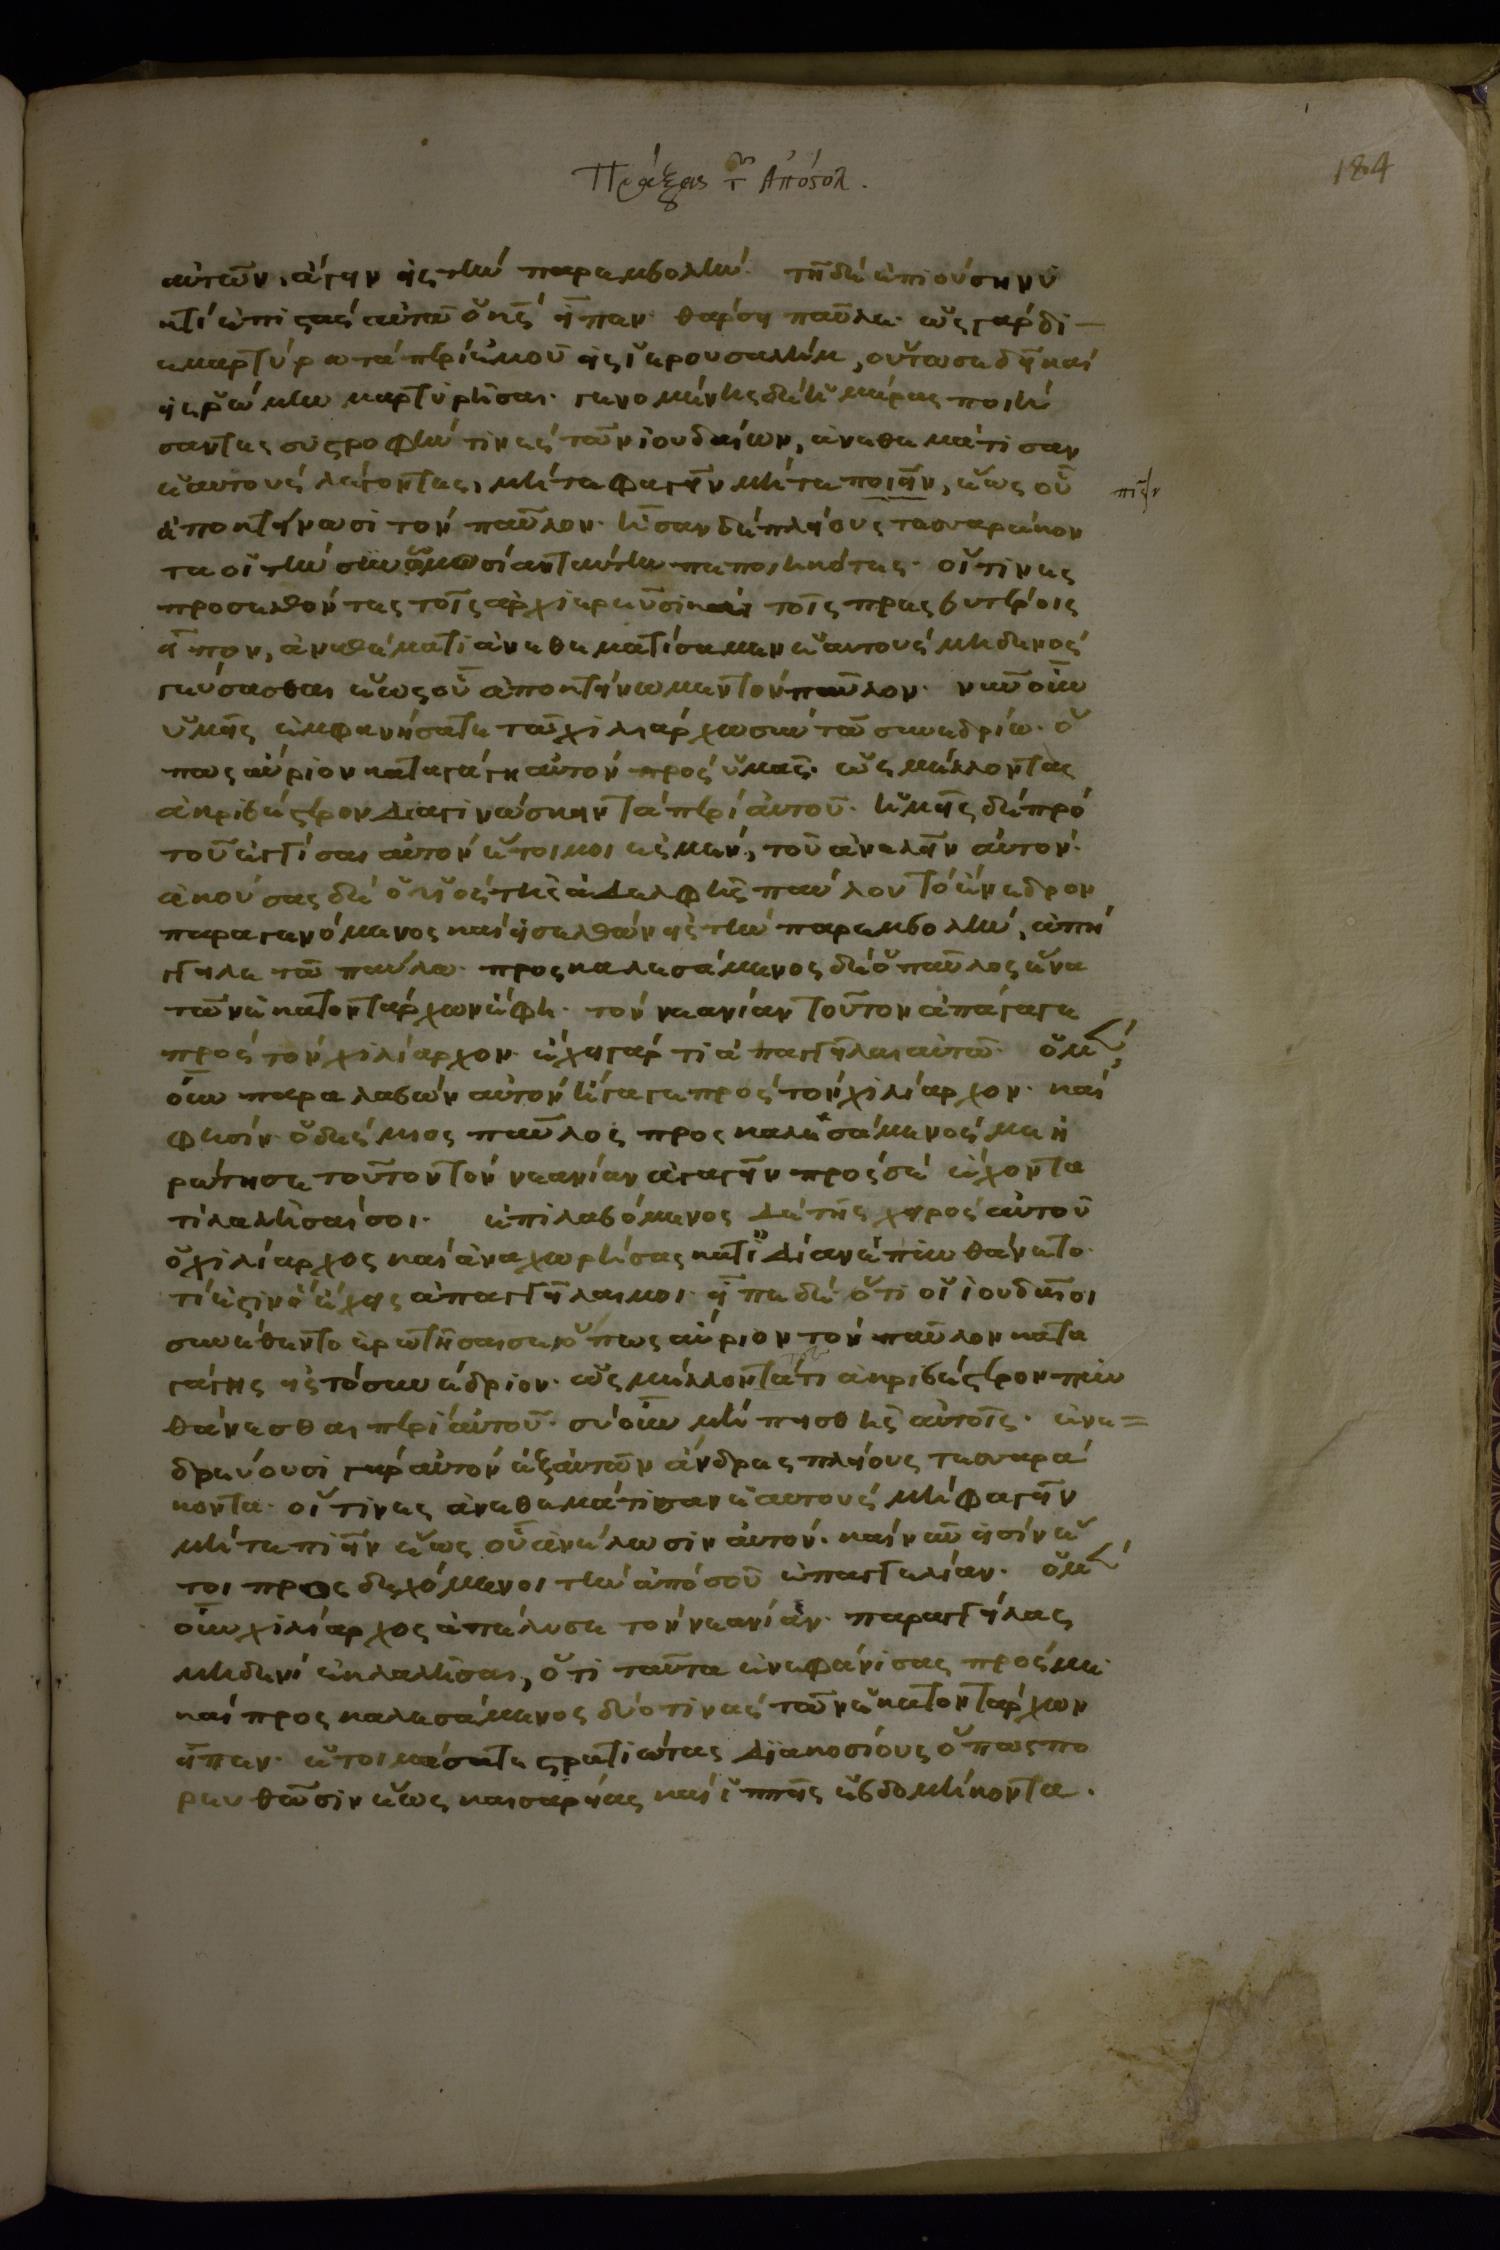 Πράξεις τῶν Ἀποστόλ.
184
αὐτῶν, ἄγειν εἰς τὴν παρεμβολήν. τῆ δὲ ἐπιούση νυ
κτί ἐπιστὰς αὐτῶ ὁ κς̅ εἶπεν. θάρσει παῦλε. ὡς γὰρ δι
εμαρτύρω τὰ περὶ ἐμοῦ εἰς ἱερουσαλήμ, οὕτω σε δεῖ καὶ
εἰς ῥώμην μαρτυρῆσαι. γενομένης δὲ ἡμέρας ποιή
σαντες συστροφήν τινες τῶν ἰουδαίων, ἀνεθεμάτισαν
ἑαυτοὺς λέγοντες, μήτε φαγεῖν μήτε ποιεῖν, ἕως οὗ
πιεῖν
ἀποκτείνωσι τὸν παῦλον. ἦσαν δὲ πλείους τεσσαράκον
τα οἱ τὴν συνωμοσίαν ταύτην πεποιηκότες. οἵτινες
προσελθόντες τοῖς ἀρχιερεῦσι καὶ τοῖς πρεσβυτέροις
εἶπον, ἀναθέματι ἀνεθεματίσαμεν ἑαυτοὺς μηδενὸς
γεύσασθαι ἕως οὗ ἀποκτείνωμεν τὸν παῦλον. νῦν οὖν
ὑμεῖς ἐμφανήσατε τῶ χιλιάρχω σὺν τῶ συνεδρίω. ὅ
πως αὔριον καταγάγη αὐτὸν πρὸς ὑμᾶς. ὡς μέλλοντας
ἀκριβέστερον διαγινώσκειν τὰ περὶ αὐτοῦ. ἡμεῖς δὲ πρὸ
τοῦ ἐγγίσαι αὐτὸν ἕτοιμοι ἐσμέν, τοῦ ἀνελεῖν αὐτόν.
ἀκούσας δὲ ὁ υἱὸς τῆς ἀδελφῆς παύλου τὸ ἔνεδρον
παραγενόμενος καὶ εἰσελθὼν εἰς τὴν παρεμβολήν, ἀπή
γγειλε τῶ παύλω. προςκαλεσάμενος δὲ ὁ παῦλος ἕνα
τῶν ἑκατοντάρχων ἔφη. τὸν νεανίαν τοῦτον ἀπάγαγε
πρὸς τὸν χιλίαρχον. ἔχει γάρ τι ἀπαγγεῖλαι αὐτῶ. ὁ μὲν
οὖν παραλαβὼν αὐτὸν ἤγαγε πρὸς τὸν χιλίαρχον. καὶ
φησίν. ὁ δέσμιος παῦλος προςκαλεσάμενός με ἠ
ρώτησε τοῦτον τὸν νεανίαν ἀγαγεῖν πρὸς σὲ ἔχοντα
τὶ λαλῆσαί σοι. ἐπιλαβόμενος δὲ τῆς χειρὸς αὐτοῦ
ὁ χιλίαρχος καὶ ἀναχωρήσας κατ' ἰδίαν ἐπυνθάνετο.
τί ἐστιν ὃ ἔχεις ἀπαγγεῖλαι μοι. εἶπε δὲ ὅτι οἱ ἰουδαῖοι
συνέθεντο ἐρωτῆσαι σε ὅπως αὔριον τὸν παῦλον κατα
γάγης εἰς τὸ συνέδριον. ὡς μέλλοντά τι ἀκριβέστερον πυν
θάνεσθαι περὶ αὐτοῦ. σὺ οὖν μὴ πεισθῆς αὐτοῖς. ἐνε=
δρεύουσι γὰρ αὐτὸν ἐξ αὐτῶν ἄνδρες πλείους τεσσαρά
κοντα. οἵτινες ἀνεθεμάτισαν ἑαυτοὺς μὴ φαγεῖν
μήτε πιεῖν ἕως οὗ ἀνέλωσιν αὐτόν. καὶ νῦν εἰσὶν ἕ
τοι προςδεχόμενοι τὴν ἀπὸ σοῦ ἐπαγγελίαν. ὁ μὲν
οὖν χιλίαρχος ἀπέλυσε τὸν νεανίαν. παραγγείλας
μηδενὶ ἐκλαλῆσαι, ὅτι ταῦτα ἐνεφάνισας πρός με.
καὶ προςκαλεσάμενος δύο τινὰς τῶν ἑκατοντάρχων
εἶπεν. ἑτοιμάσατε στρατιώτας διακοσίους ὅπως πο
ρευθῶσιν ἕως καισαρείας καὶ ἱππεῖς ἑβδομήκοντα.